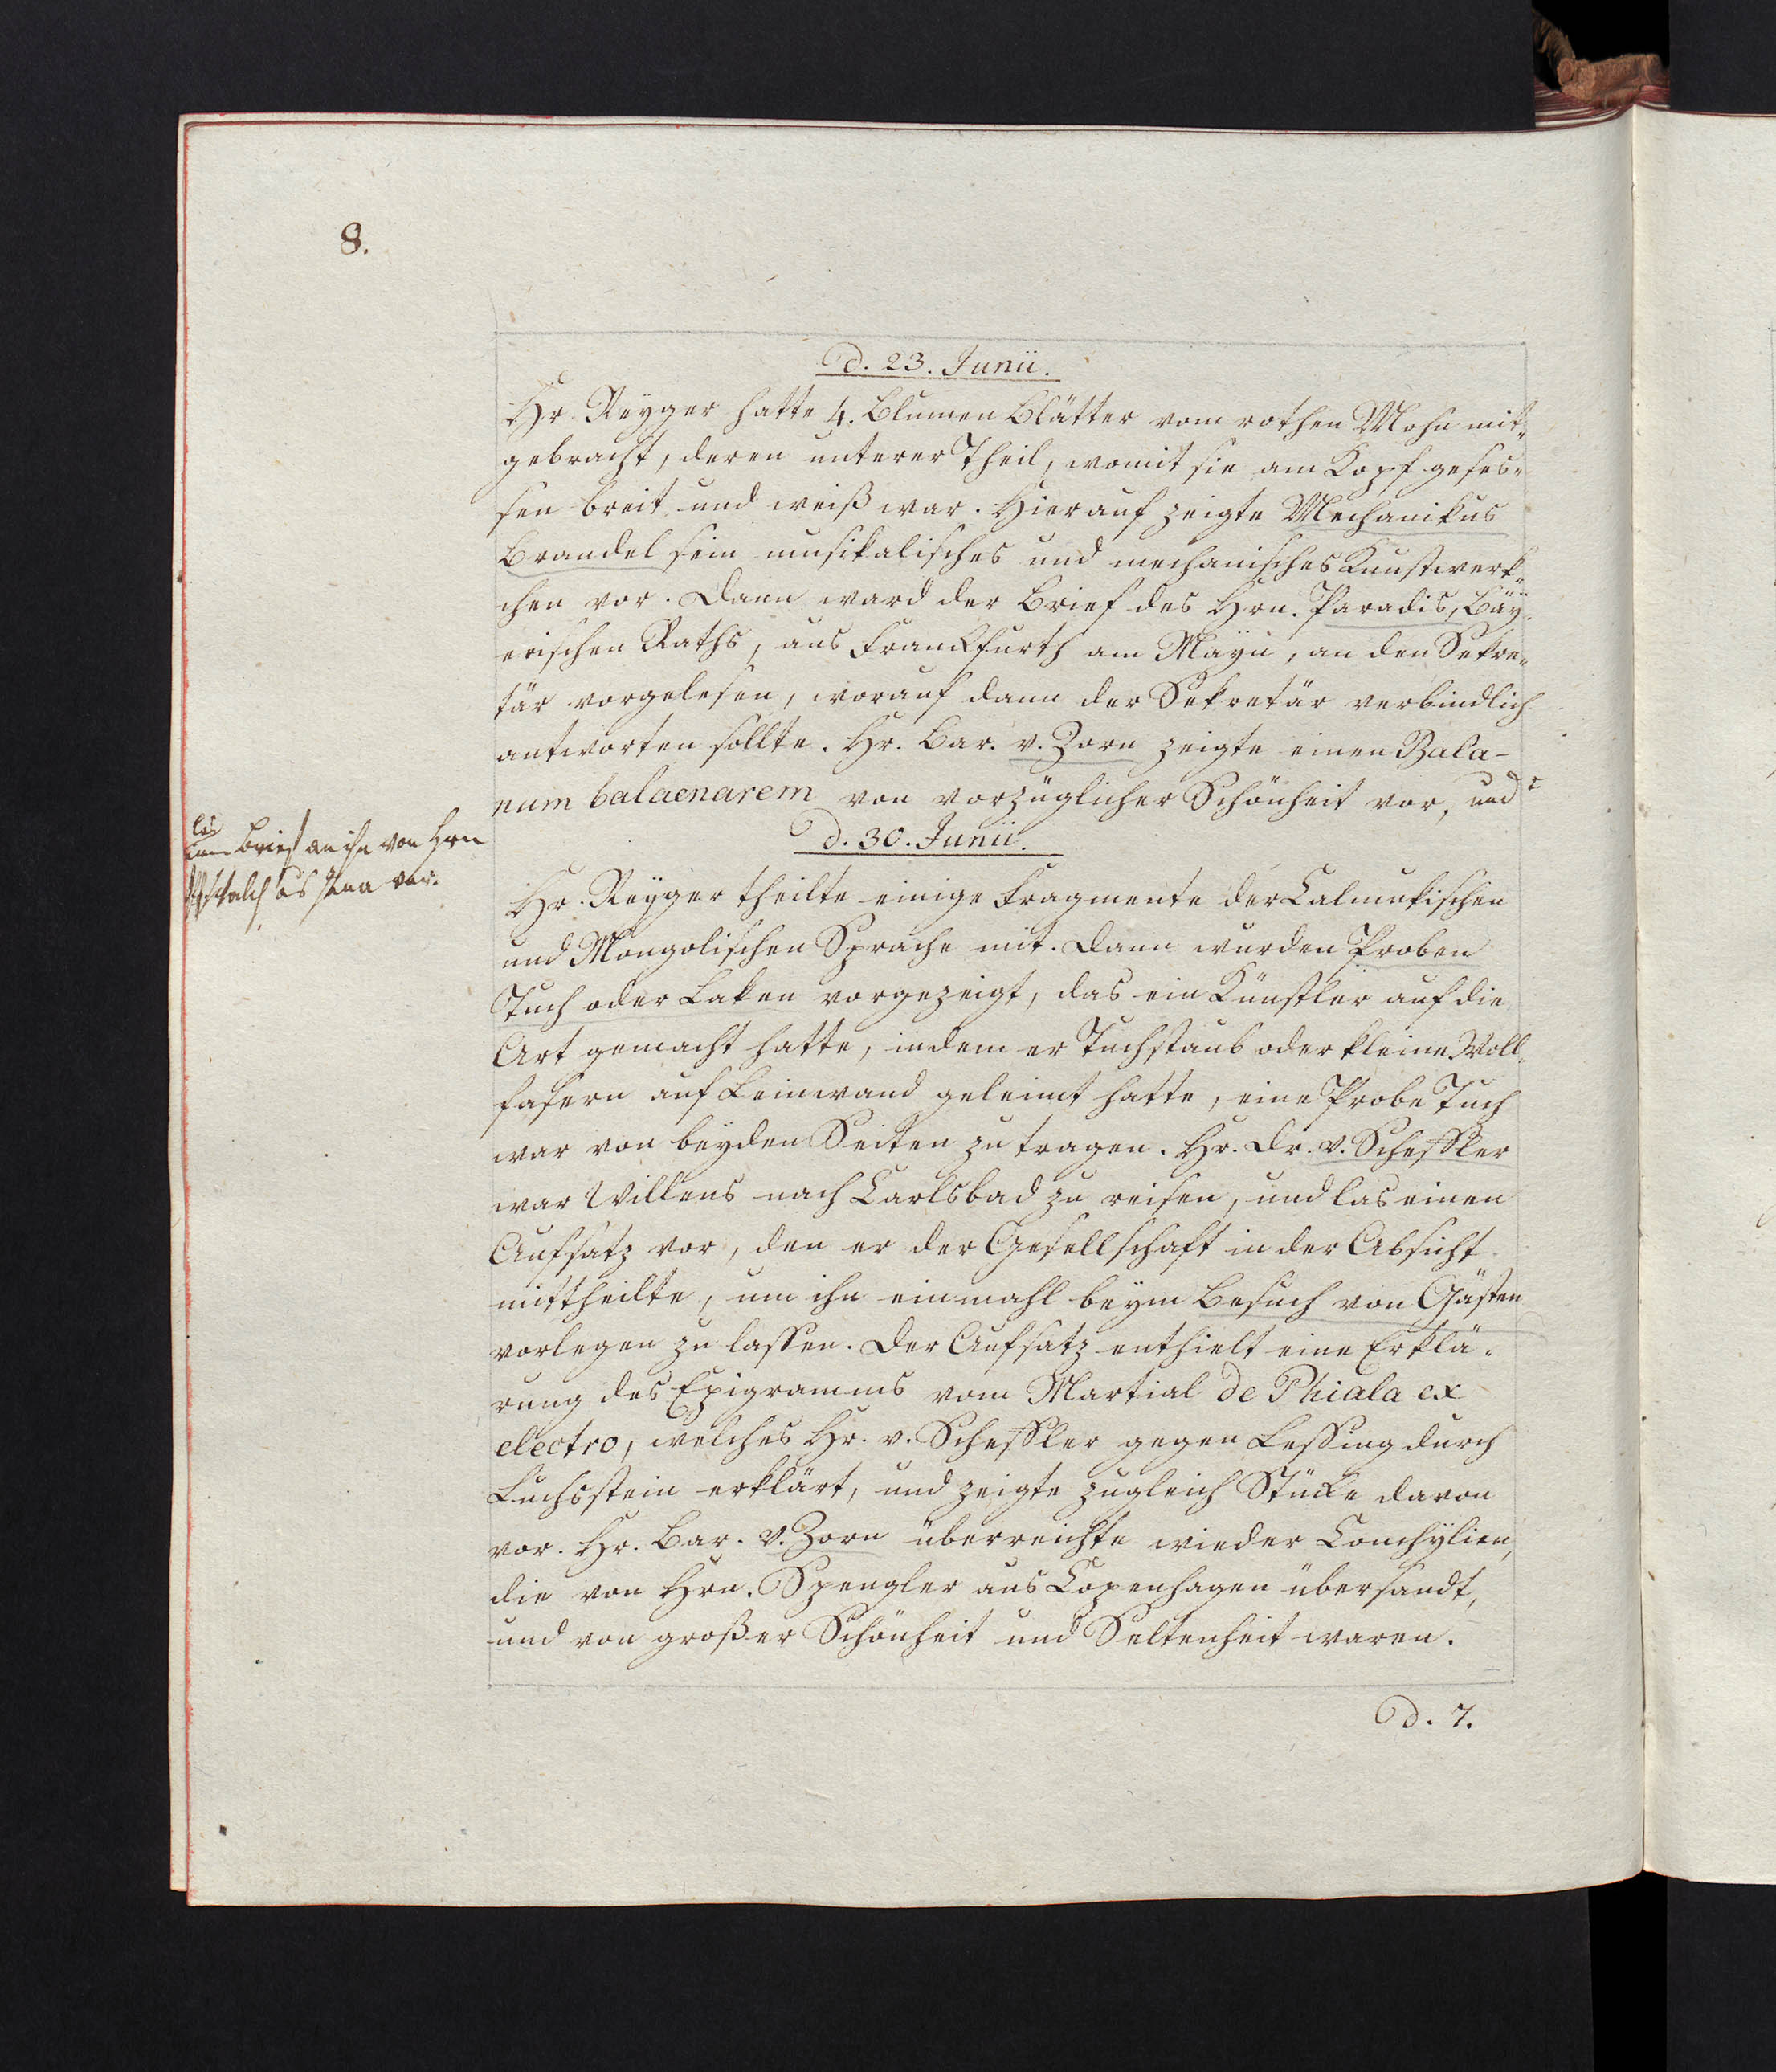 8.
d. 23. Junii.
Hr. Reyger hatte 4. Blumen Blätter vom rothen Mohn mit„
gebracht, deren unterer Theil, womit sie am Kopf geses„
sen breit und weiß war. Hierauf zeigte Mechanikus
Brandel sein musikalisches und mechanisches Kunstwerk„
chen vor. Dann ward der Brief des Hrn. Paradis, Bäy„
erischen Raths, aus Franckfurth am Mayn, an den Sekre„
tär vorgelesen, worauf dann der Sekretär verbindlich
antworten sollte. Hr. Bar. v. Zorn zeigte einen Bala-
num balaenarem von vorzüglicher Schönheit vor, und
las
Brief an ihn von Hrn
aus Jena vor.
d. 30. Junii.
Hr. Reyger theilte einige Fragmente der Calmukischen
und Mongolischen Sprache mit. Dann wurden Proben
Tuch oder Laken vorgezeigt, das ein Künstler auf die
Art gemacht hatte, indem er Tuchstaub oder kleine Woll„
fasern auf Leinwand geleimt hatte, eine Probe Tuch
war von beyden Seiten zu tragen. Hr. Dr. v. Scheffler
war Willens nach Carlsbad zu reisen, und las einen
Aufsatz vor, den er der Gesellschaft in der Absicht
mittheilte, um ihn einmahl beym Besuch von Gästen
vorlegen zu lassen. Der Aufsatz enthielt eine Erklä„
rung des Epigramms vom Martial de Phiala ex
electro, welches Hr. v. Scheffler gegen Lessing durch
Luchsstein erklärt, und zeigte zugleich Stücke davon
vor. Hr. Bar. v. Zorn überreichte wieder Conchylien,
die von Hrn. Spengler aus Copenhagen übersandt,
und von großer Schönheit und Seltenheit waren.
d. 7.